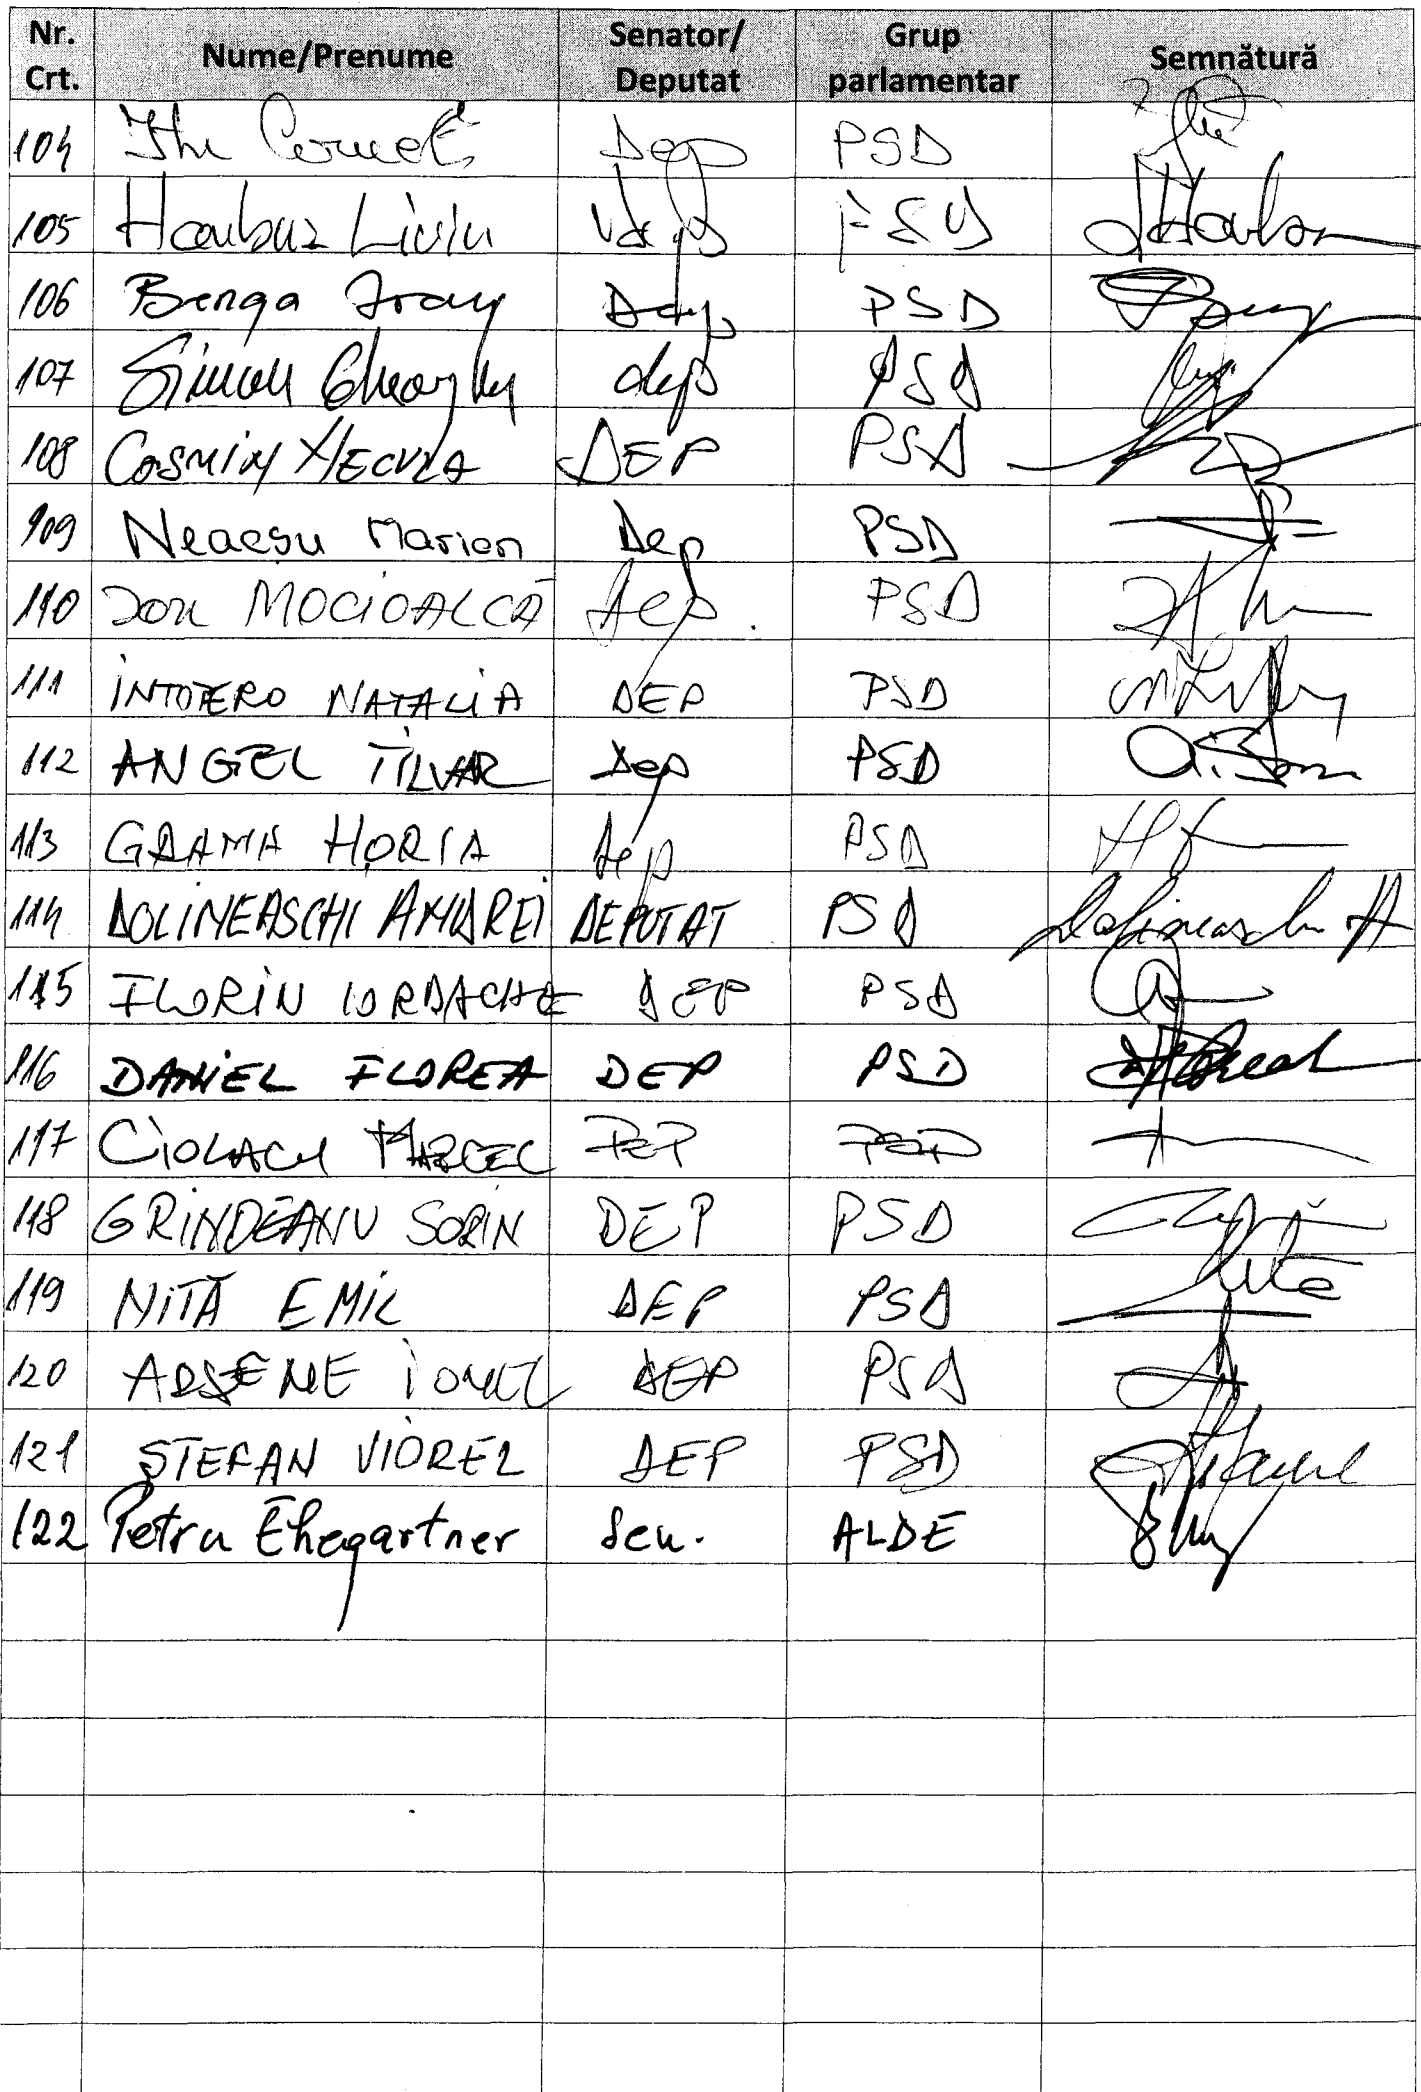 Nr. Crt. Nume/Prenume Senator/ Deputat Grup parlamentar Semnătură
104 Dep PSD
105 Harbuz Liviu Dep PSD
106 Benga Dep PSD
107 Simon Gheorghe dep PSD
108 Cosmin Necula DEP PSD
109 Neacșu Marian Dep PSD
110 Ion MOCIOALCĂ Dep. PSD
111 INTOTERO NATALIA DEP PSD
112 ANGEL TÎLVĂR Dep PSD
113 GRAMA HORIA Dep PSD
114 DOLINEASCHI ANDREI DEPUTAT PSD Dolineaschi A
115 FLORIN IORDACHE DEP PSD
116 DANIEL FLOREA DEP PSD
117 CIOLACU MARCEL DEP PSD
118 GRINDEANU SORIN DEP PSD
119 NIȚĂ EMIL DEP PSD
120 ARSENE IONEL DEP PSD
121 ȘTEFAN VIOREL DEP PSD
122 Petru Ehegartner Sen. ALDE